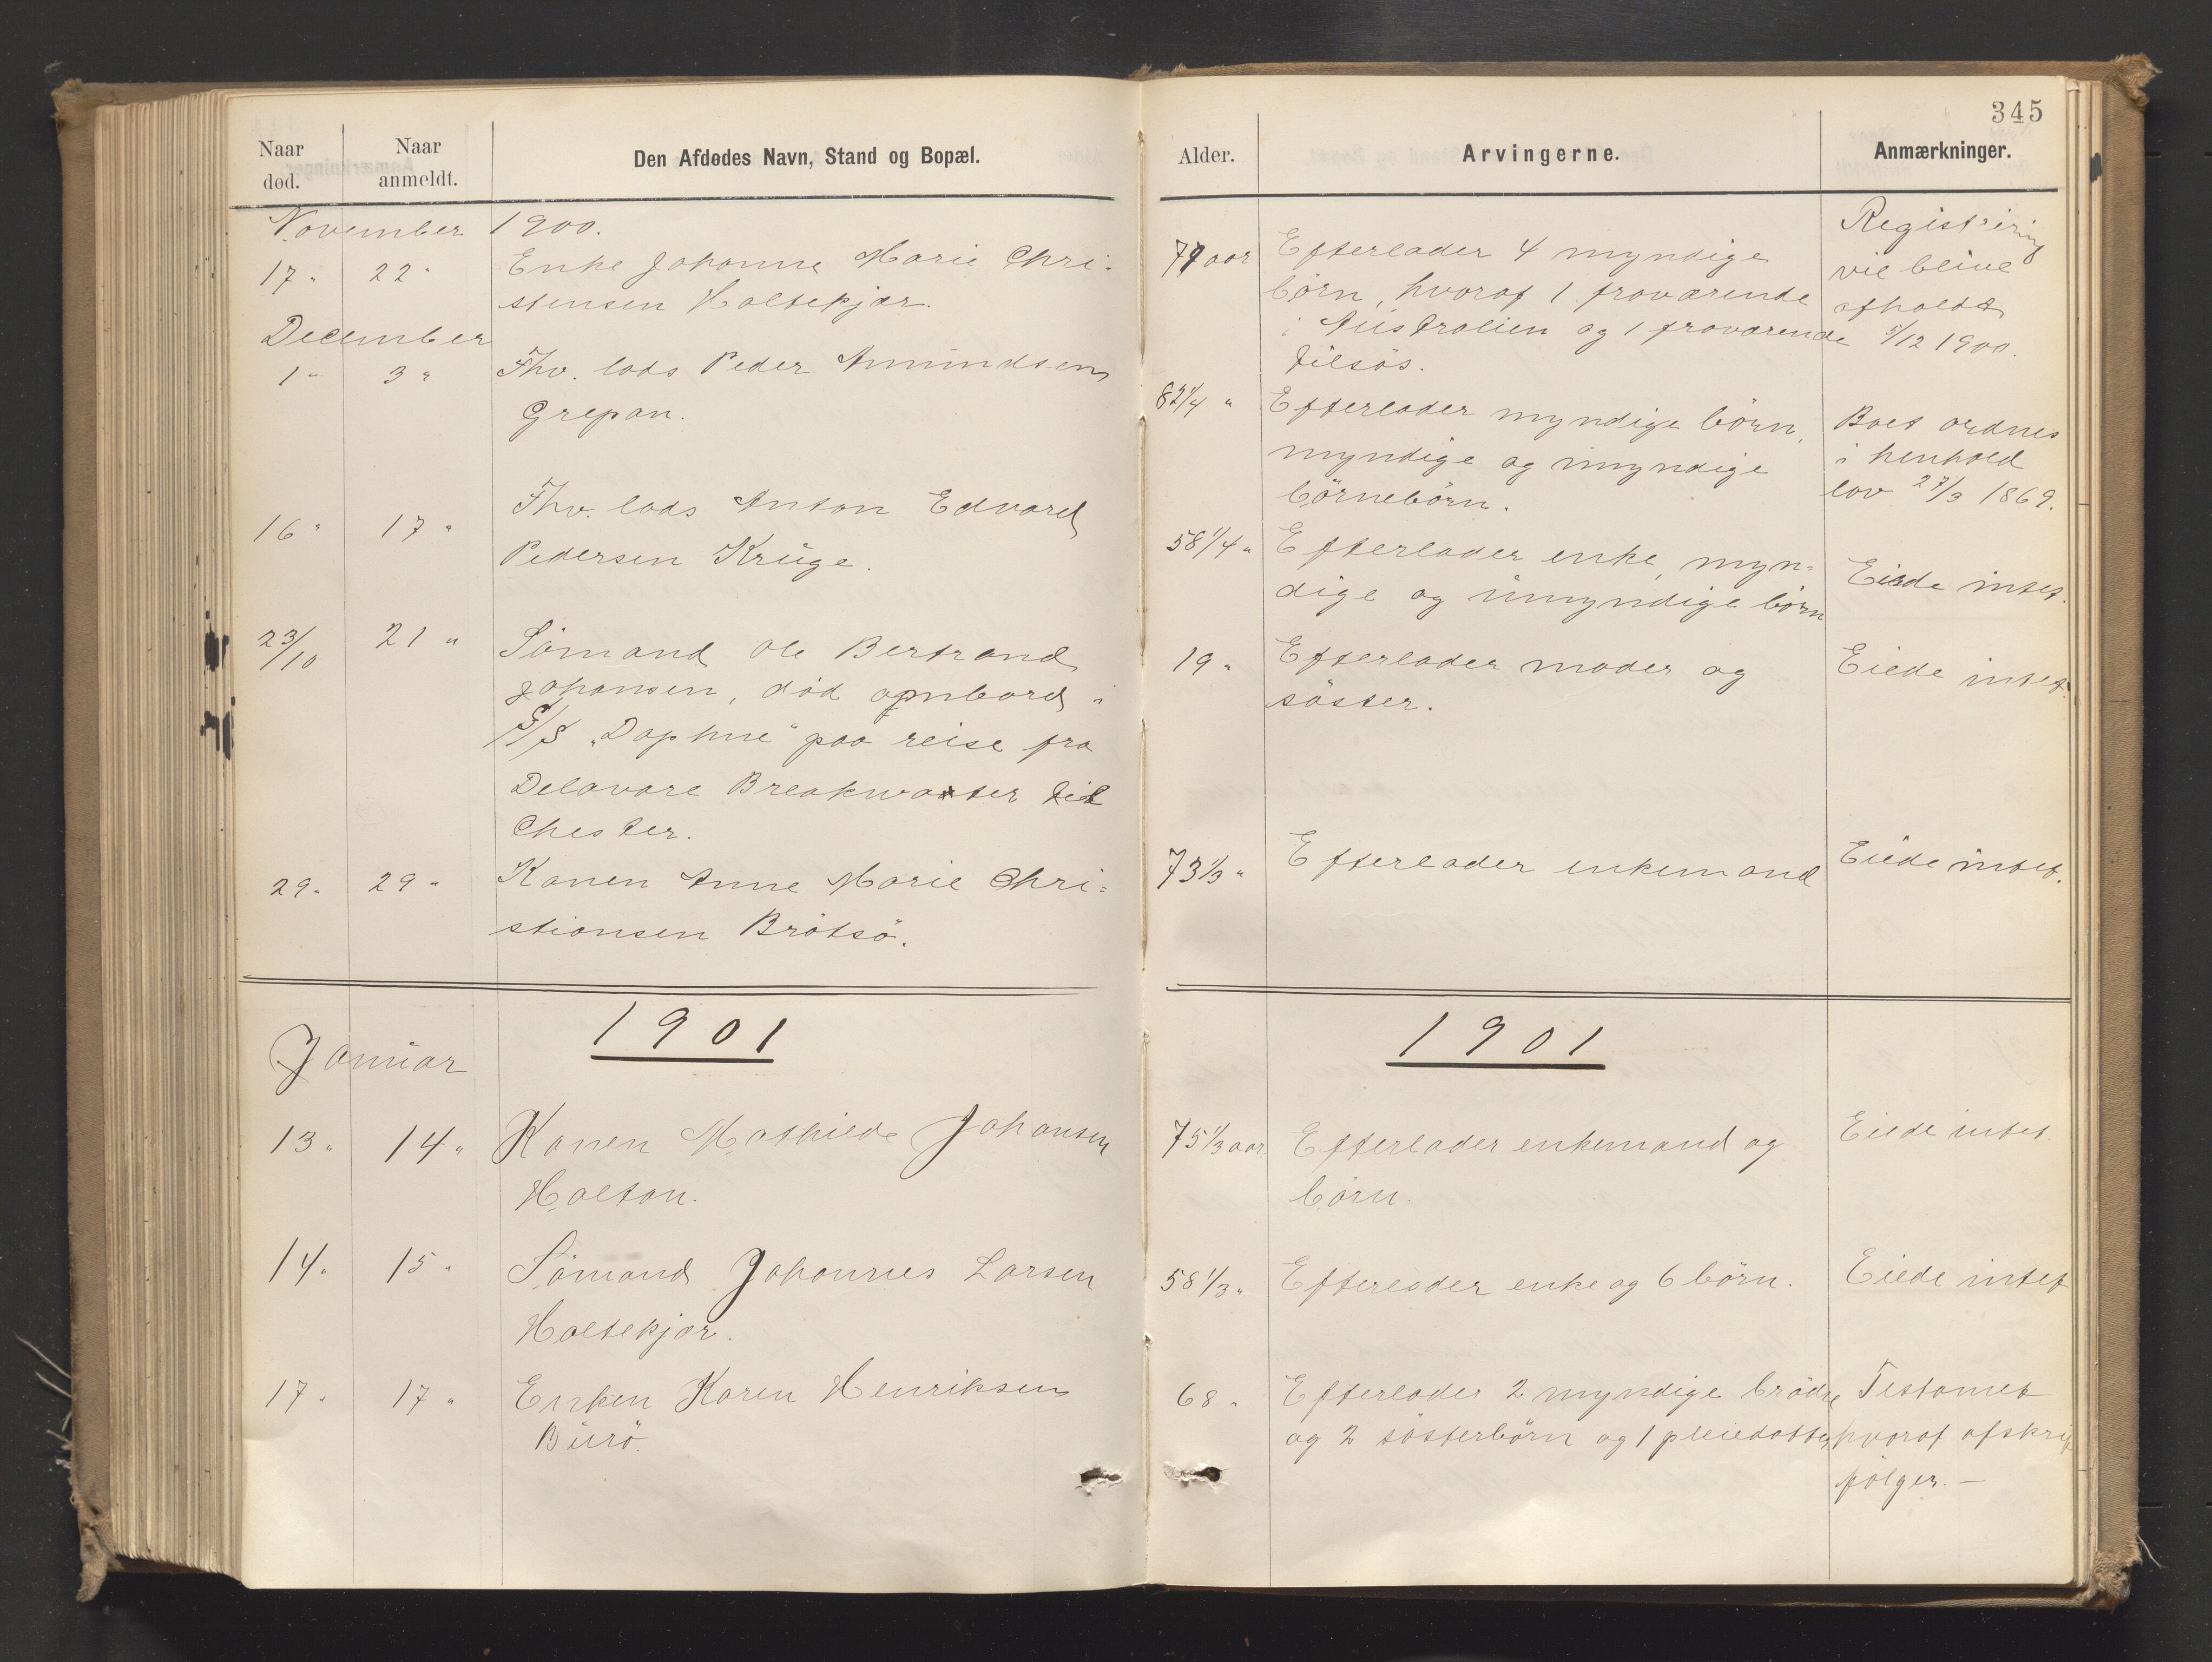 345
Naar død.
Naar anmeldt.
Den Afdødes Navn, Stand og Bopæl.
Alder.
Arvingerne.
Anmærkninger.
November 1900.
17 " 22 " Enke Johanne Marie Chri-
stensen Holtekjær.
79 aar Efterlader 4 myndige
börn, hvoraf 1 fraværende
i Australien og 1 fraværende
tilsös.
Registrering
vil blive
afholdt
5/12 1900.
December
1 " 3 " Fhv. lods Peder Amundsen
Grepan.
82 1/4 " Efterlader myndige börn,
myndige og umyndige
börnebörn.
Boet ordnes
i henhold
lov 27/3 1869.
16 " 17 " Fhv. lods Anton Edvard
Pedersen Kruge.
58 1/4 " Efterlader enke, myn-
dige og umyndige börn
Eiede intet.
23/10 21 " Sömand Ole Bertrand
Johansen, död ombord i
S/S "Daphne" paa reise fra
Delavare Breakwater til
Chester.
19 " Efterlader moder og
söster.
Eiede intet.
29 " 29 " Konen Anne Marie Chri-
stiansen Brötsö.
73 1/3 " Efterlader enkemand
Eiede intet.
1901
1901
Januar
13 " 14 " Konen Mathilde Johansen
Holtan.
75 1/3 aar. Efterlader enkemand og
börn.
Eiede intet.
14 " 15 " Sömand Johannes Larsen
Holtekjær.
58 1/3 " Efterlader enke og 6 börn.
Eiede intet
17 " 17 " Enken Karen Henriksen
Burö.
68 " Efterlader 2 myndige brödre
og 2 sösterbörn og 1 pleiedatter
Testamet
hvoraf afskrift
fölger. —